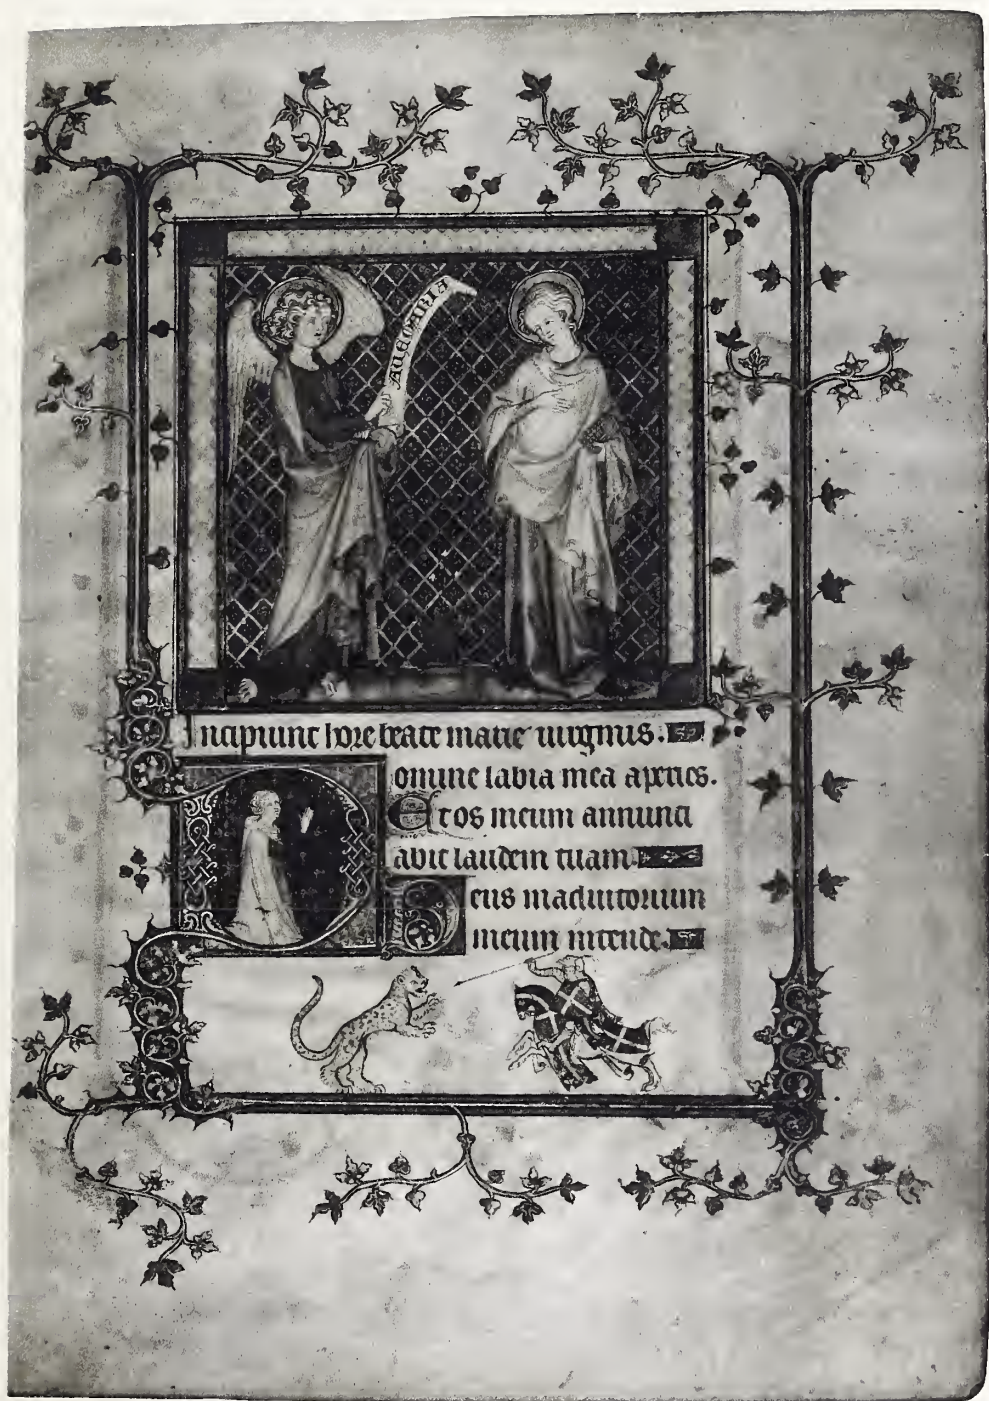 AVE MARIA
Incipiunt hore beate marie uirginis.
Domine labia mea aperies.
Et os meum annunci
abit laudem tuam
Deus in adiutorium
meum intende.